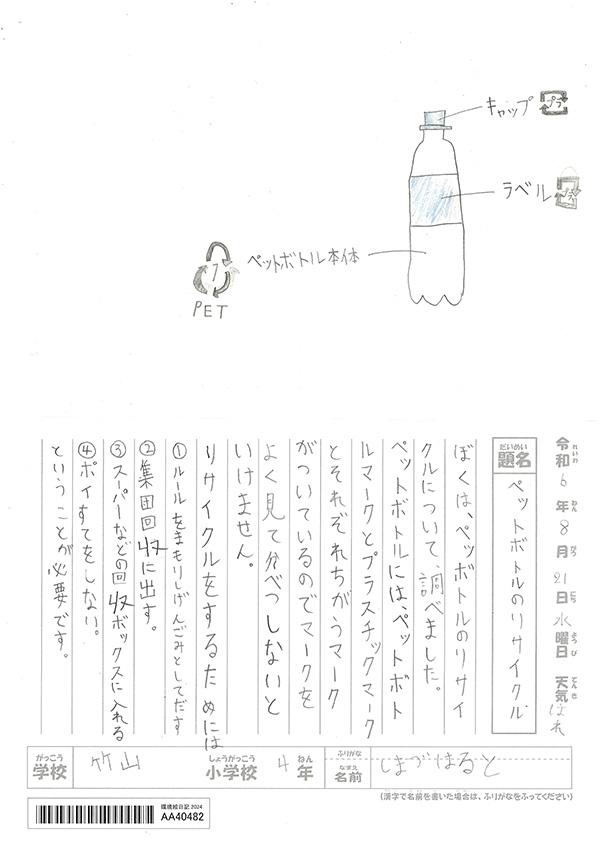 キャップ
プラ
ラベル
プラ
ペットボトル本体
1
PET
令和6年8月21日水曜日 天気はれ
れいわ ねん がつ にち ようび てんき
だいめい
題名 ペットボトルのリサイクル
ぼくは、ペッボトルのリサイ
クルについて、調べました。
ペットボトルには、ペットボト
ルマークとプラスチックマーク
とそれぞれちがうマーク
がついているのでマークを
よく見て分べつしないと
いけません。
リサイクルをするためには
①ルールをまもりしげんごみとしてだす
②集団回収に出す。
③スーパーなどの回収ボックスに入れる
④ポイすてをしない。
ということが必要です。
がっこう しょうがっこう ねん ふりがな
学校 竹山 小学校 4年
なまえ
名前 しまづはると
(漢字で名前を書いた場合は、ふりがなをふってください)
環境絵日記 2024
AA40482